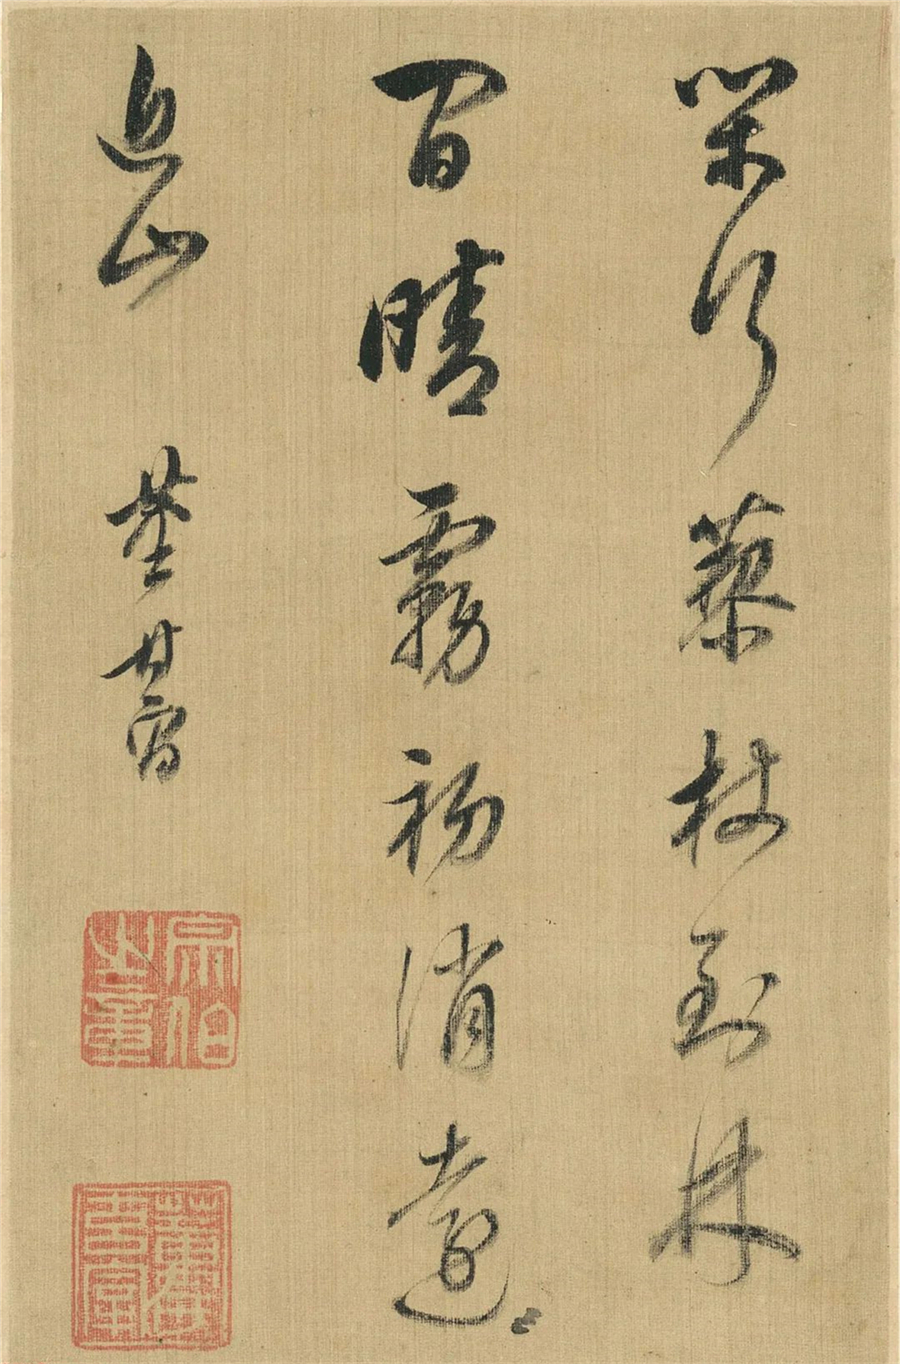 閑行藜杖到林
間晴霧初消遠
近山 董其昌
宗伯之章